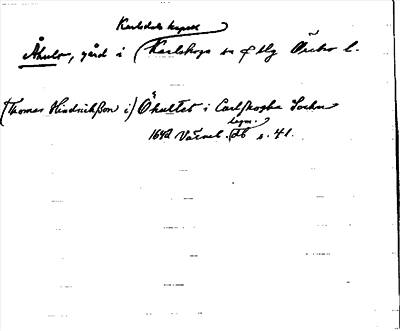 Karlsdals kapell
Åhult, gård i Karlskoga sn o bg Örebro l.
(Thomas Hindrichsson i) Åhultet i Carlskogha Sochn
legm.
1642 Värml. s. 41.